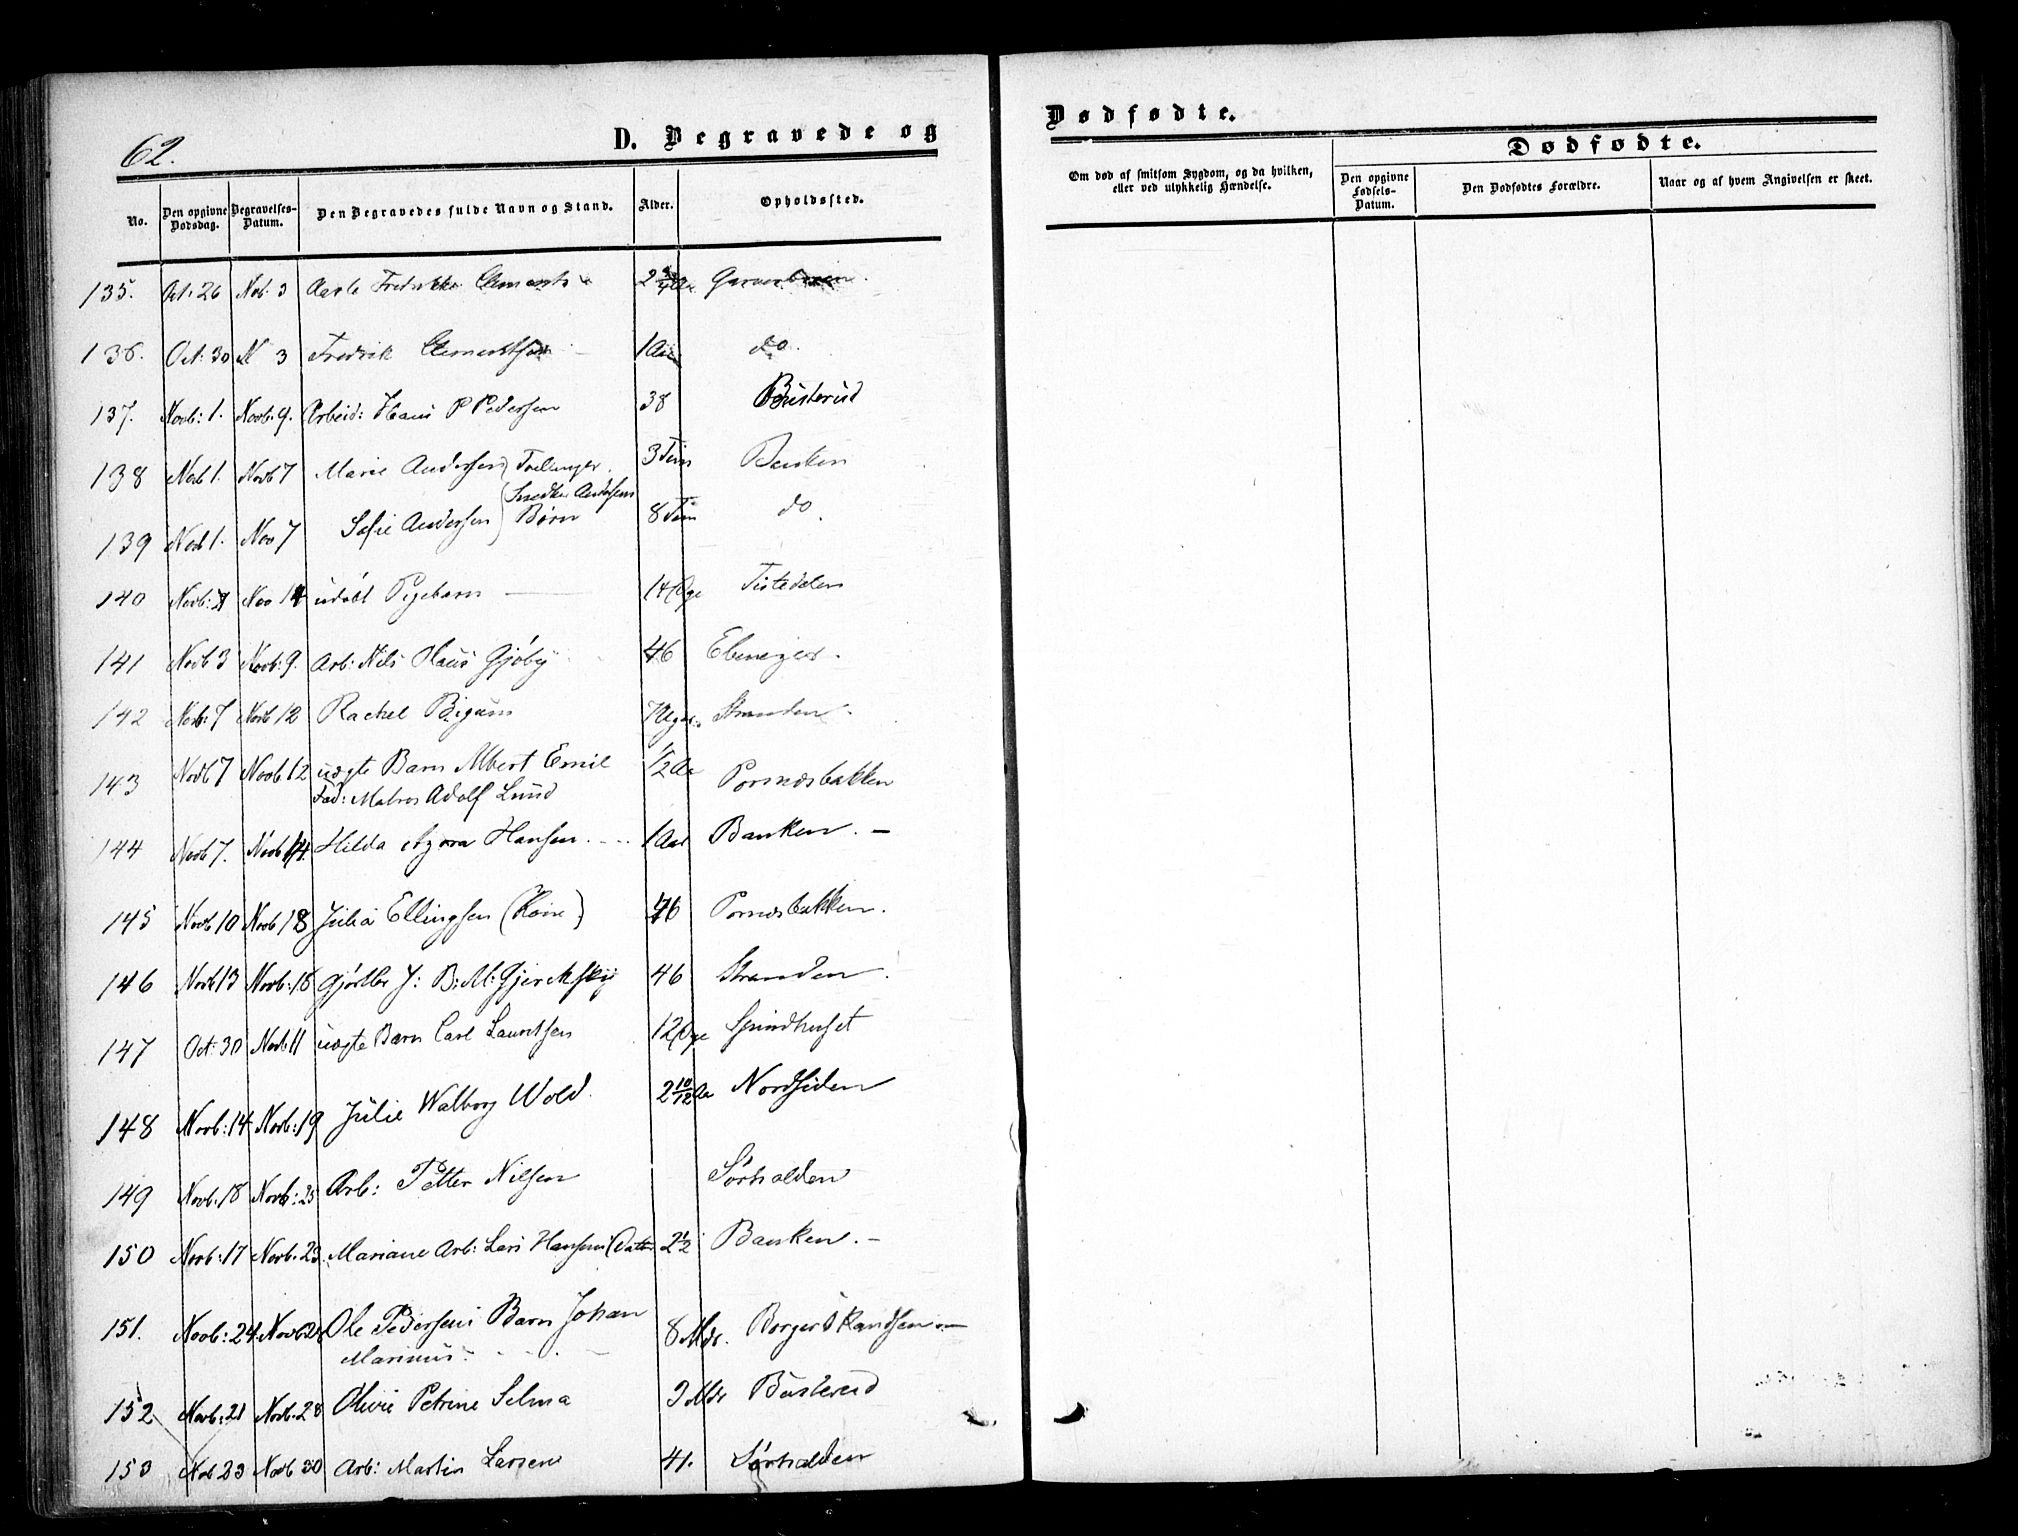 62.
D. Begravede og
No.
Den opgivne Dødsdag.
Begravelses-Datum.
Den Begravedes fulde Navn og Stand.
Alder.
Opholdssted.
135. Oct: 26 Nob. 3 Fredrikke 2
136. Oct: 30 N 3 Fredrik 1 Aar do.
137. Novb: 1. Novb. 9. Arbeid: Hans P Pedersen 38 Busterud
138 Novb 1. Novb 7 Marie Andersen Tvillinger. 3 Tim Banken
Snedker Andersens
139 Novb 1. Nov 7 Sofie Andersen Børn 8 Tim do.
140 Novb: Nov 14 udøbt Pigebarn 14 Dge Tistedalen
141 Novb 3 Novb: 9. Arb: Nils Hans Gjøby 46 Ebenezer.
142 Novb: 7 Novb 12 Rachel Bigum 7 Stranden.
143 Novb 7 Novb. 12 uægte Barn Albert Emil 1/2 Aa Pornæsbakken
Fad: Matros Adolf Lund
144 Novb 7. Novb 14. Hilda Hansen. 1 Aar Banken. —
145 Novb 10 Novb 18 Julia Ellingsen (Kone) 76 Pornæsbakken.
146 Novb 13 Novb: 18 Gjørtler J: B: M: 46 Stranden.
147 Oct: 30 Novb 11 uægte Barn Carl Lauritsen 12 Dge Spindhuset
148 Novb: 14 Novb: 19 Julie Walborg Wold. 2 10/12 Aa Nordsiden
149 Novb. 18 Novb: 25 Arb: Petter Nilsen Sørhalden
150 Novb: 17 Novb. 23. Mariane Arb: Lars Hansens Datter 2 1/2 Banken. —
151. Novb: 24. Novb 28 Ole Pedersens Barn Johan 8 Mdr.
Marinus.
152 Novb: 21 Novb. 28 Olivie Petrine Selma Mdr Busterud
153 Nob 23 Novb 30 Arb: Martin Larsen 41. Sørhalden
Dødfødte.
Om død af smitsom Sygdom, og da hvilken, eller ved ulykkelig Hændelse.
Dødfødte.
Den opgivne Fødsels-Datum.
Den Dødfødtes Forældre.
Naar og af hvem Angivelsen er skeet.